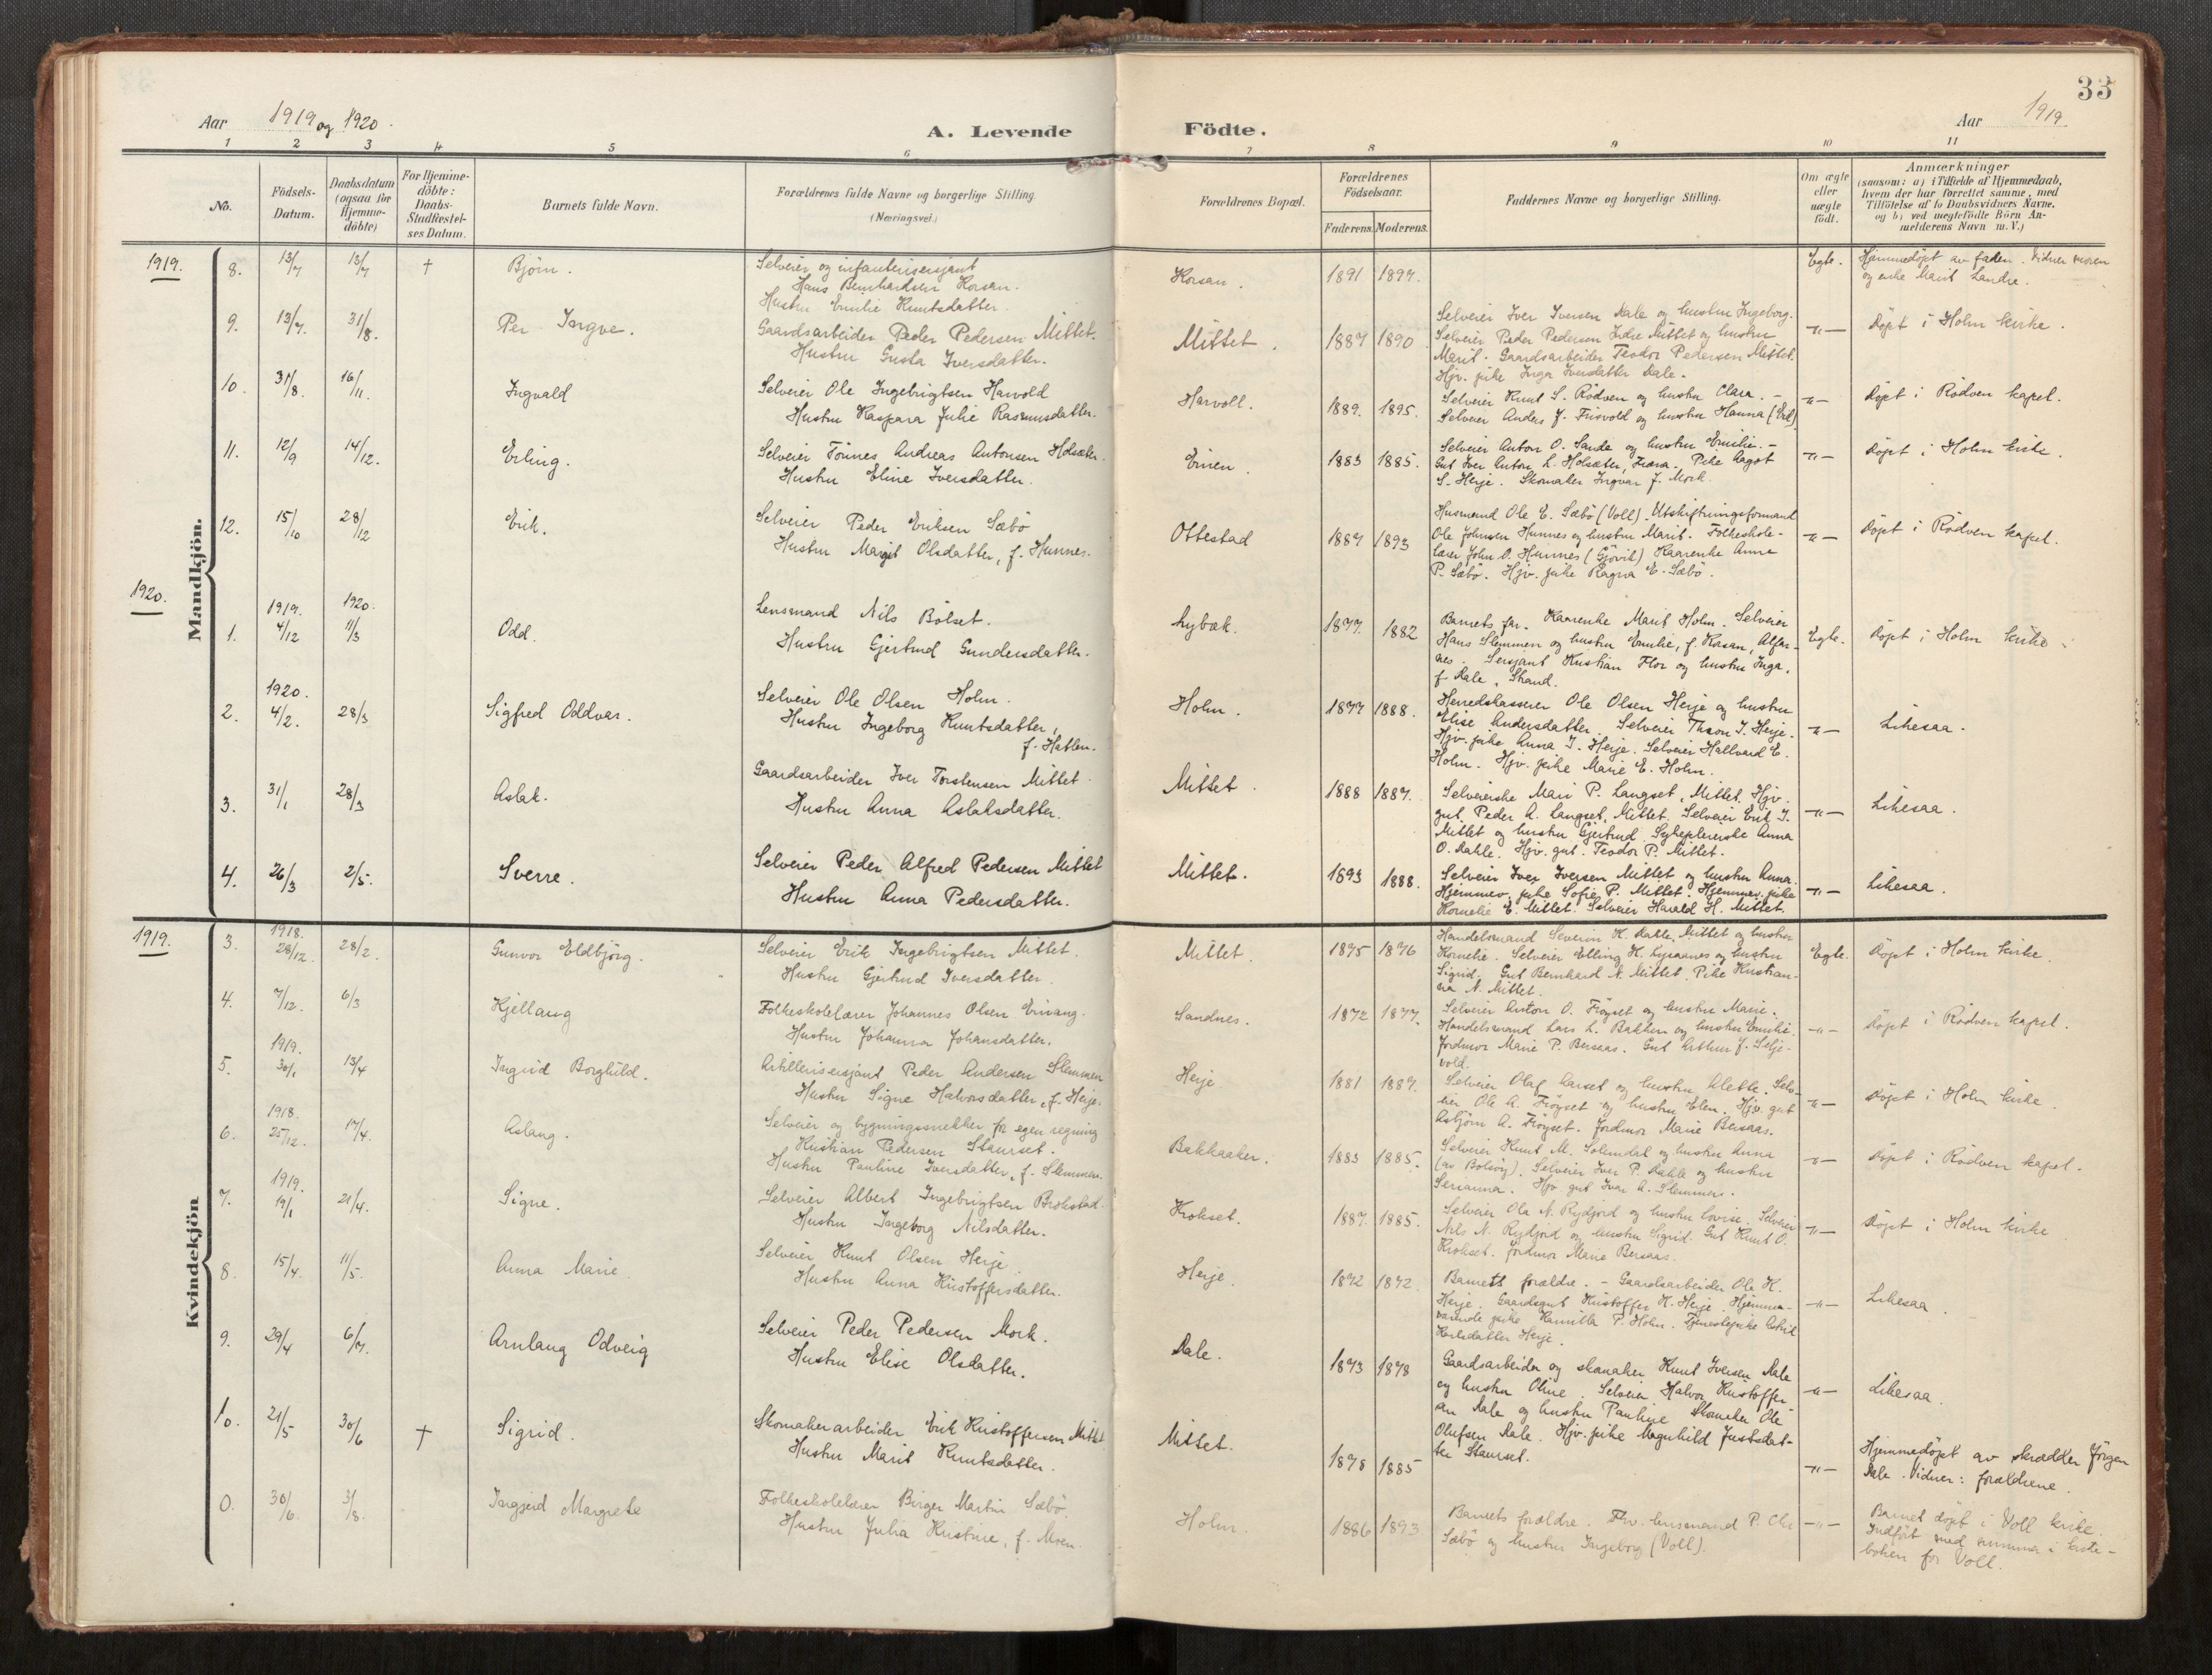 33
Aar 1919 og 1920.
A. Levende Födte.
Aar 1919
1 2 3 4 5 6 7 8 9 10 11
No.
Födsels-
Datum.
Daabsdatum
(ogsaa for
Hjemme-
döbte)
For Hjemme-
döbte:
Daabs-
Stadfestel-
ses Datum.
Barnets fulde Navn.
Forældrenes fulde Navne og borgerlige Stilling.
(Næringsvei.)
Forældrenes Bopæl.
Forældrenes
Födselsaar.
Faderens. Moderens.
Faddernes Navne og borgerlige Stilling.
Om ægte
eller
uægte
födt.
Anmærkninger
(saasom: a) i Tilfælde af Hjemmedaab,
hvem der har forrettet samme, med
Tilföielse af to Daabsvidners Navne,
og b) ved uægtefödte Börn An-
melderens Navn m. V.)
Mandkjön.
1919.
8. 13/7 13/7 † Björn.
Selveier og infanterisersjant
Hans Bernhardsen Korsan.
Hustru Emilie Knutsdatter.
Korsan. 1891 1897.
Egte.
Hjemmedöpt av faden. Vidner moren
og enke Marit Landre.
9. 13/7. 31/8. Per Ingve.
Gaardsarbeider Peder Pedersen Mittet.
Hustru Gusta Iversdatter.
Mittet. 1887 1890
Selveier Iver Iversen Dale og hustru Ingeborg.
Selveier Peder Pedersen Indre Mittet og hustru
Marit. Gaardsarbeider Teodor Pedersen Mittet.
Hjv. pike Inga Iversdatter Dale.
-"- Döpt i Holm kirke.
10. 31/8. 16/11. Ingvald
Selveier Ole Ingebrigtsen Harvold
Hustru Kaspara Julie Rasmusdatter.
Harvoll. 1889. 1895.
Selveier Knut S. Rödven og hustru Clara. -
Selveier Anders J. Frisvold og hustru Hanna (Eid)
-"- Döpt i Rödven kapel.
11. 12/9 14/12. Erling.
Selveier Tönnes Andreas Antonsen Holsæter.
Hustru Eline Iversdatter.
Eiren. 1883 1885.
Selveier Anton O. Sande og hustru Emilie. -
Gut Iver Anton L. Holsæter, Fræna. Pike Aagot
S. Herje. Skomaker Ingvar J. Mork.
-"- Döpt i Holm kirke.
12. 15/10 28/12 Erik.
Selveier Peder Eriksen Sæbö
Hustru Margit Olsdatter, f. Hunnes.
Ottestad 1887 1893
Husmand Ole E. Sæbö (Voll). Utskiftningsformand
Ole Johnsen Hunnes og hustru Marit. Folkeskole-
lærer John O. Hunnes (Gjövik) Kaarenke Anne
P. Sæbö. Hjv. pike Ragna E. Sæbö.
-"- Döpt i Rödven kapel.
1920.
1. 1919. 4/12 1920. 11/3 Odd.
Lensmand Nils Bölset.
Hustru Gjertrud Gundersdatter.
Lybæk. 1877. 1882
Barnets far. Kaarenke Marit Holm. Selveier
Hans Slemmen og hustru Emilie, f. Kasan, Alfar-
nes. Sersjant Kristian Flor og hustru Inga,
f. Dale, Strand.
Egte. Döpt i Holm kirke.
2. 1920. 4/2. 28/3 Sigfred Oddvar.
Selveier Ole Olsen Holm.
Hustru Ingeborg Knutsdatter,
f. Hatlen.
Holm. 1877 1888.
Herredskasserer Ole Olsen Herje og hustru
Elise Andersdatter. Selveier Thron I. Herje.
Hjv. pike Anna I. Herje. Selveier Hallvard E.
Holm. Hjv. pike Marie E. Holm.
-"- Likesaa.
3. 31/1 28/3 Aslak.
Gaardsarbeider Iver Torstensen Mittet.
Hustru Anna Aslaksdatter.
Mittet. 1888 1887.
Selveierske Mari P. Langset, Mittet. Hjv.
gut Peder A. Langset, Mittet. Selveier Erik I.
Mittet og hustru Gjertrud. Sykepleierske Anna
O. Dahle. Hjv. gut. Teodor P. Mittet.
-"- Likesaa.
4. 26/3 2/5. Sverre.
Selveier Peder Alfred Pedersen Mittet
Hustru Anna Pedersdatter.
Mittet. 1893 1888.
Selveier Iver Iversen Mittet og hustru Anna.
Hjemmev. pike Sofie P. Mittet. Hjemmev. pike
Kornelie E. Mittet. Selveier Harald H. Mittet.
-"- Likesaa.
Kvindekjön
1919.
3. 1918. 28/12. 28/2. Gunvor Eldbjörg.
Selveier Erik Ingebrigtsen Mittet.
Hustru Gjertrud Iversdatter.
Mittet. 1875 1876
Handelsmand Severin K. Dahle, Mittet og hustru
Kornelie. Selveier Elling K. Lyraanes og hustru
Sigrid. Gut Bernhard N. Mittet. Pike Kristian-
na N. Mittet.
Egte. Döpt i Holm kirke.
4. 7/12. 6/3 Kjellaug
Folkeskolelærer Johannes Olsen Eirvang.
Hustru Johanna Johansdatter.
Sandnes. 1872 1877.
Selveier Anton O. Fröyset og hustru Marie.
Handelsmand Lars L. Bakken og hustru Emilie.
Jordmor Marie P. Bersaas. Gut Arthur J. Selje-
vold.
-"- Döpt i Rödven kapel.
5. 1919. 30/1 13/4 Ingrid Borghild.
Artillerisersjant Peder Andersen Slemmen
Hustru Signe Halvorsdatter, f. Herje.
Herje 1881 1887.
Selveier Olaf Aarset og hustru Alette. Selv-
eier Ole A. Fröyset og hustru Elen. Hjv. gut
Asbjörn A. Fröyset. Jordmor Marie Bersaas.
-"- Döpt i Holm kirke.
6. 1918. 25/12. 17/4. Aslaug.
Selveier og bygningssnekker for egen regning
Kristian Pedersen Staurset.
Hustru Pauline Iversdatter, f. Slemmen.
Bakkaaker. 1883 1885.
Selveier Knut M. Solemdal og hustru Anna
(av Bolsöy). Selveier Iver P. Dahle og hustru
Serianna. Hjv gut Ivar A. Slemmen.
-"- Döpt i Rödven kapel.
7. 1919. 19/1 21/4. Signe.
Selveier Albert Ingebrigtsen Brokstad.
Hustru Ingeborg Nilsdatter.
Krokset. 1887. 1885.
Selveier Ola N. Rydjord og hustru Lovise. Selveier
Nils N. Rydjord og hustru Sigrid. Gut Knut O.
Krokset. Jordmor Marie Bersaas.
-"- Döpt i Holm kirke
8. 15/4. 11/5. Anna Marie.
Selveier Knut Olsen Herje.
Hustru Anna Kristoffersdatter.
Herje. 1872 1872.
Barnets forældre. - Gaardsarbeider Ole K.
Herje. Gaardsgut Kristoffer K. Herje. Hjemme-
værende pike Kamilla P. Holm. Tjenestepike Astrid
Karlsdatter Herje.
-"- Likesaa.
9. 29/4 6/7. Arnlaug Odveig
Selveier Peder Pedersen Mork.
Hustru Elise Olsdatter.
Dale. 1873 1878
Gaardsarbeider og skomaker Knut Iversen Dale
og hustru Oline. Selveier Halvor Kristoffer-
sen Dale og hustru Pauline Skomaker Ole
Olufsen Dale. Hjv. pike Magnhild Justsdat-
ter Staurset.
-"- Likesaa.
10. 21/5 30/6 † Sigrid.
Skomakerarbeider Erik Kristoffersen Mittet.
Hustru Marit Knutsdatter.
Mittet. 1878 1885
-"- Hjemmedöpt av skrædder Jörgen
Dale. Vidner: forældrene.
0. 30/6 3/8. Ingjerd Margrete
Folkeskolelærer Birger Martin Sæbö.
Hustru Julia Kristine, f. Moen.
Holm. 1886 1893
Barnets forældre. Fhv. husmand P. Chr.
Sæbö og hustru Ingeborg (Voll).
-"- Barnet döpt i Voll kirke.
Indfört med nummer i kirke-
boken for Voll.